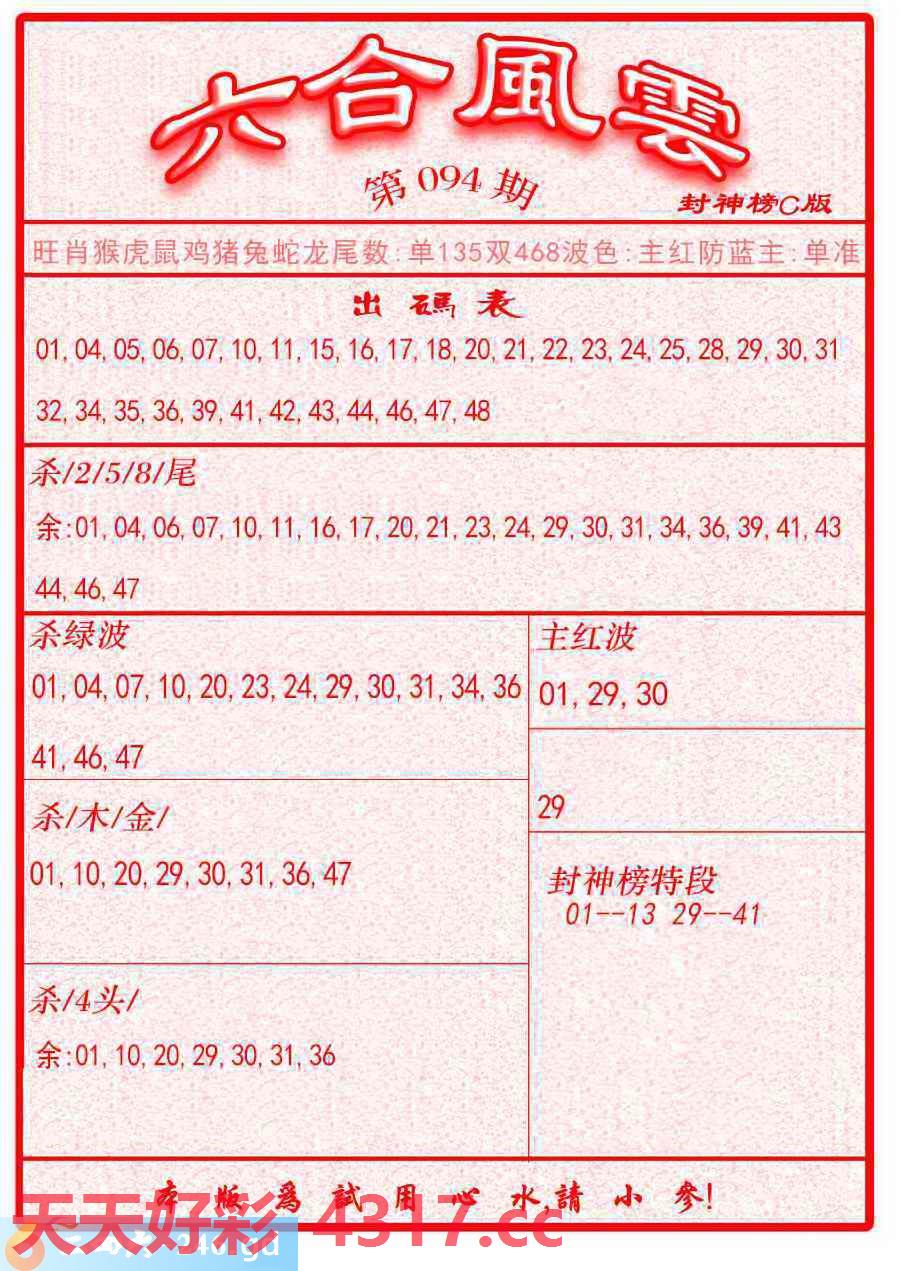 六合風雲
第094期
封神榜C版
旺肖猴虎鼠鸡猪兔蛇龙尾数:单135双468波色:主红防蓝主:单准
出碼表
01,04,05,06,07,10,11,15,16,17,18,20,21,22,23,24,25,28,29,30,31
32,34,35,36,39,41,42,43,44,46,47,48
杀/2/5/8/尾
余:01,04,06,07,10,11,16,17,20,21,23,24,29,30,31,34,36,39,41,43
44,46,47
杀绿波
01,04,07,10,20,23,24,29,30,31,34,36
41,46,47
主红波
01,29,30
29
杀/木/金/
01,10,20,29,30,31,36,47
封神榜特段
01--13 29--41
杀/4头/
余:01,10,20,29,30,31,36
本版爲試用心水,請小參!
天天好彩 4317.cc
246.gd